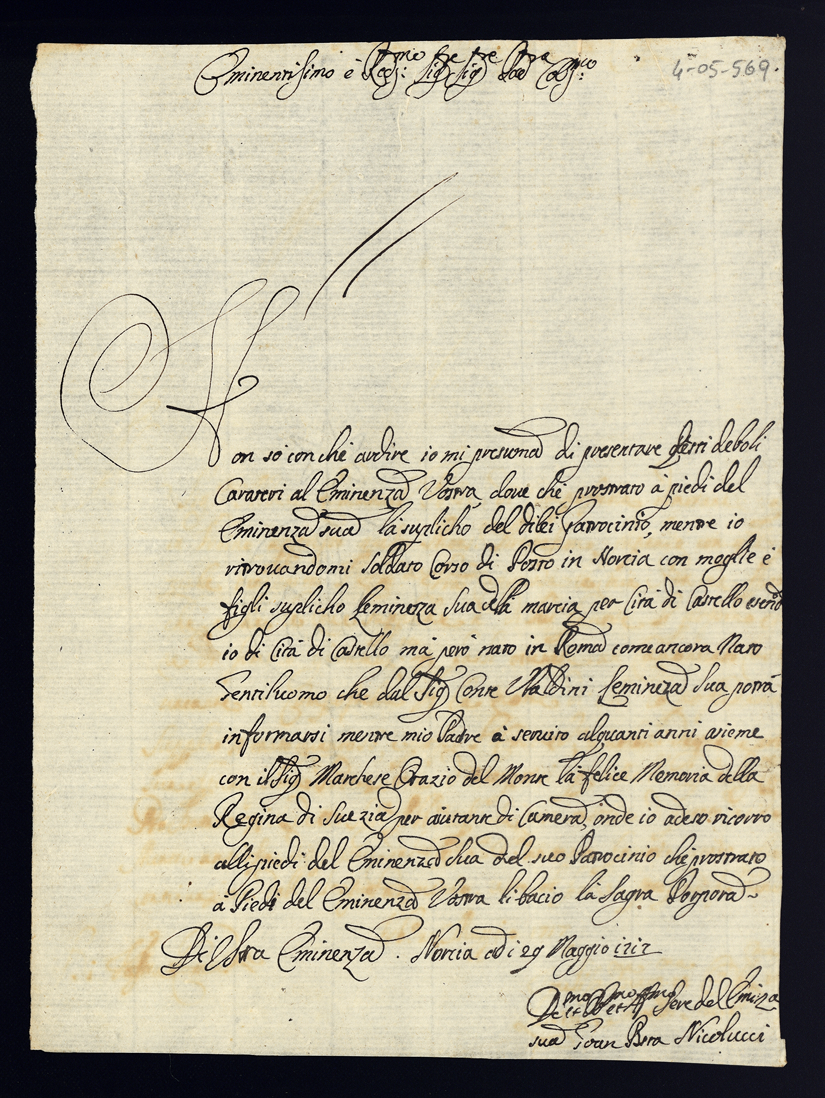 Eminentissimo è Re͞u:mo Sig.re Sig.re Pad.ne Coll:mo
4-05-569.
Non sò con chè ardire io mi presuma di presentare questi deboli
Carateri al Eminenza Vostra doue chè prostrato à piedi del
Eminenza sua la suplicho del dilei Patrocinio, mentre io
ritrouandomi soldato Corso di Posto in Norcia con moglie è
figli suplicho Leminenza Sua della marcia per Cità di Castello esendo
io di Cità di Castello mà però nato in Roma come ancora Nato
Gentiluomo che dal Sig. Conte Vbaldini Leminenza Sua potrà
informarsi mentre mio Padre à seruito alquanti anni asieme
con il Sig. Marchese Orazio del Monte la felice Memoria della
Regina di Suezia per aiutante di Camera, onde io adeso ricorro
alli piedi del Eminenza Sua del suo Patrocinio chè prostrato
à Piedi del Eminenza Vostra li bacio la Sagra Porpora ~
Di Vstra Eminenza. Norcia adi 29 Maggio 1717
Deu.mo Sere del Eminza
sua Gioan Btta Nicolucci